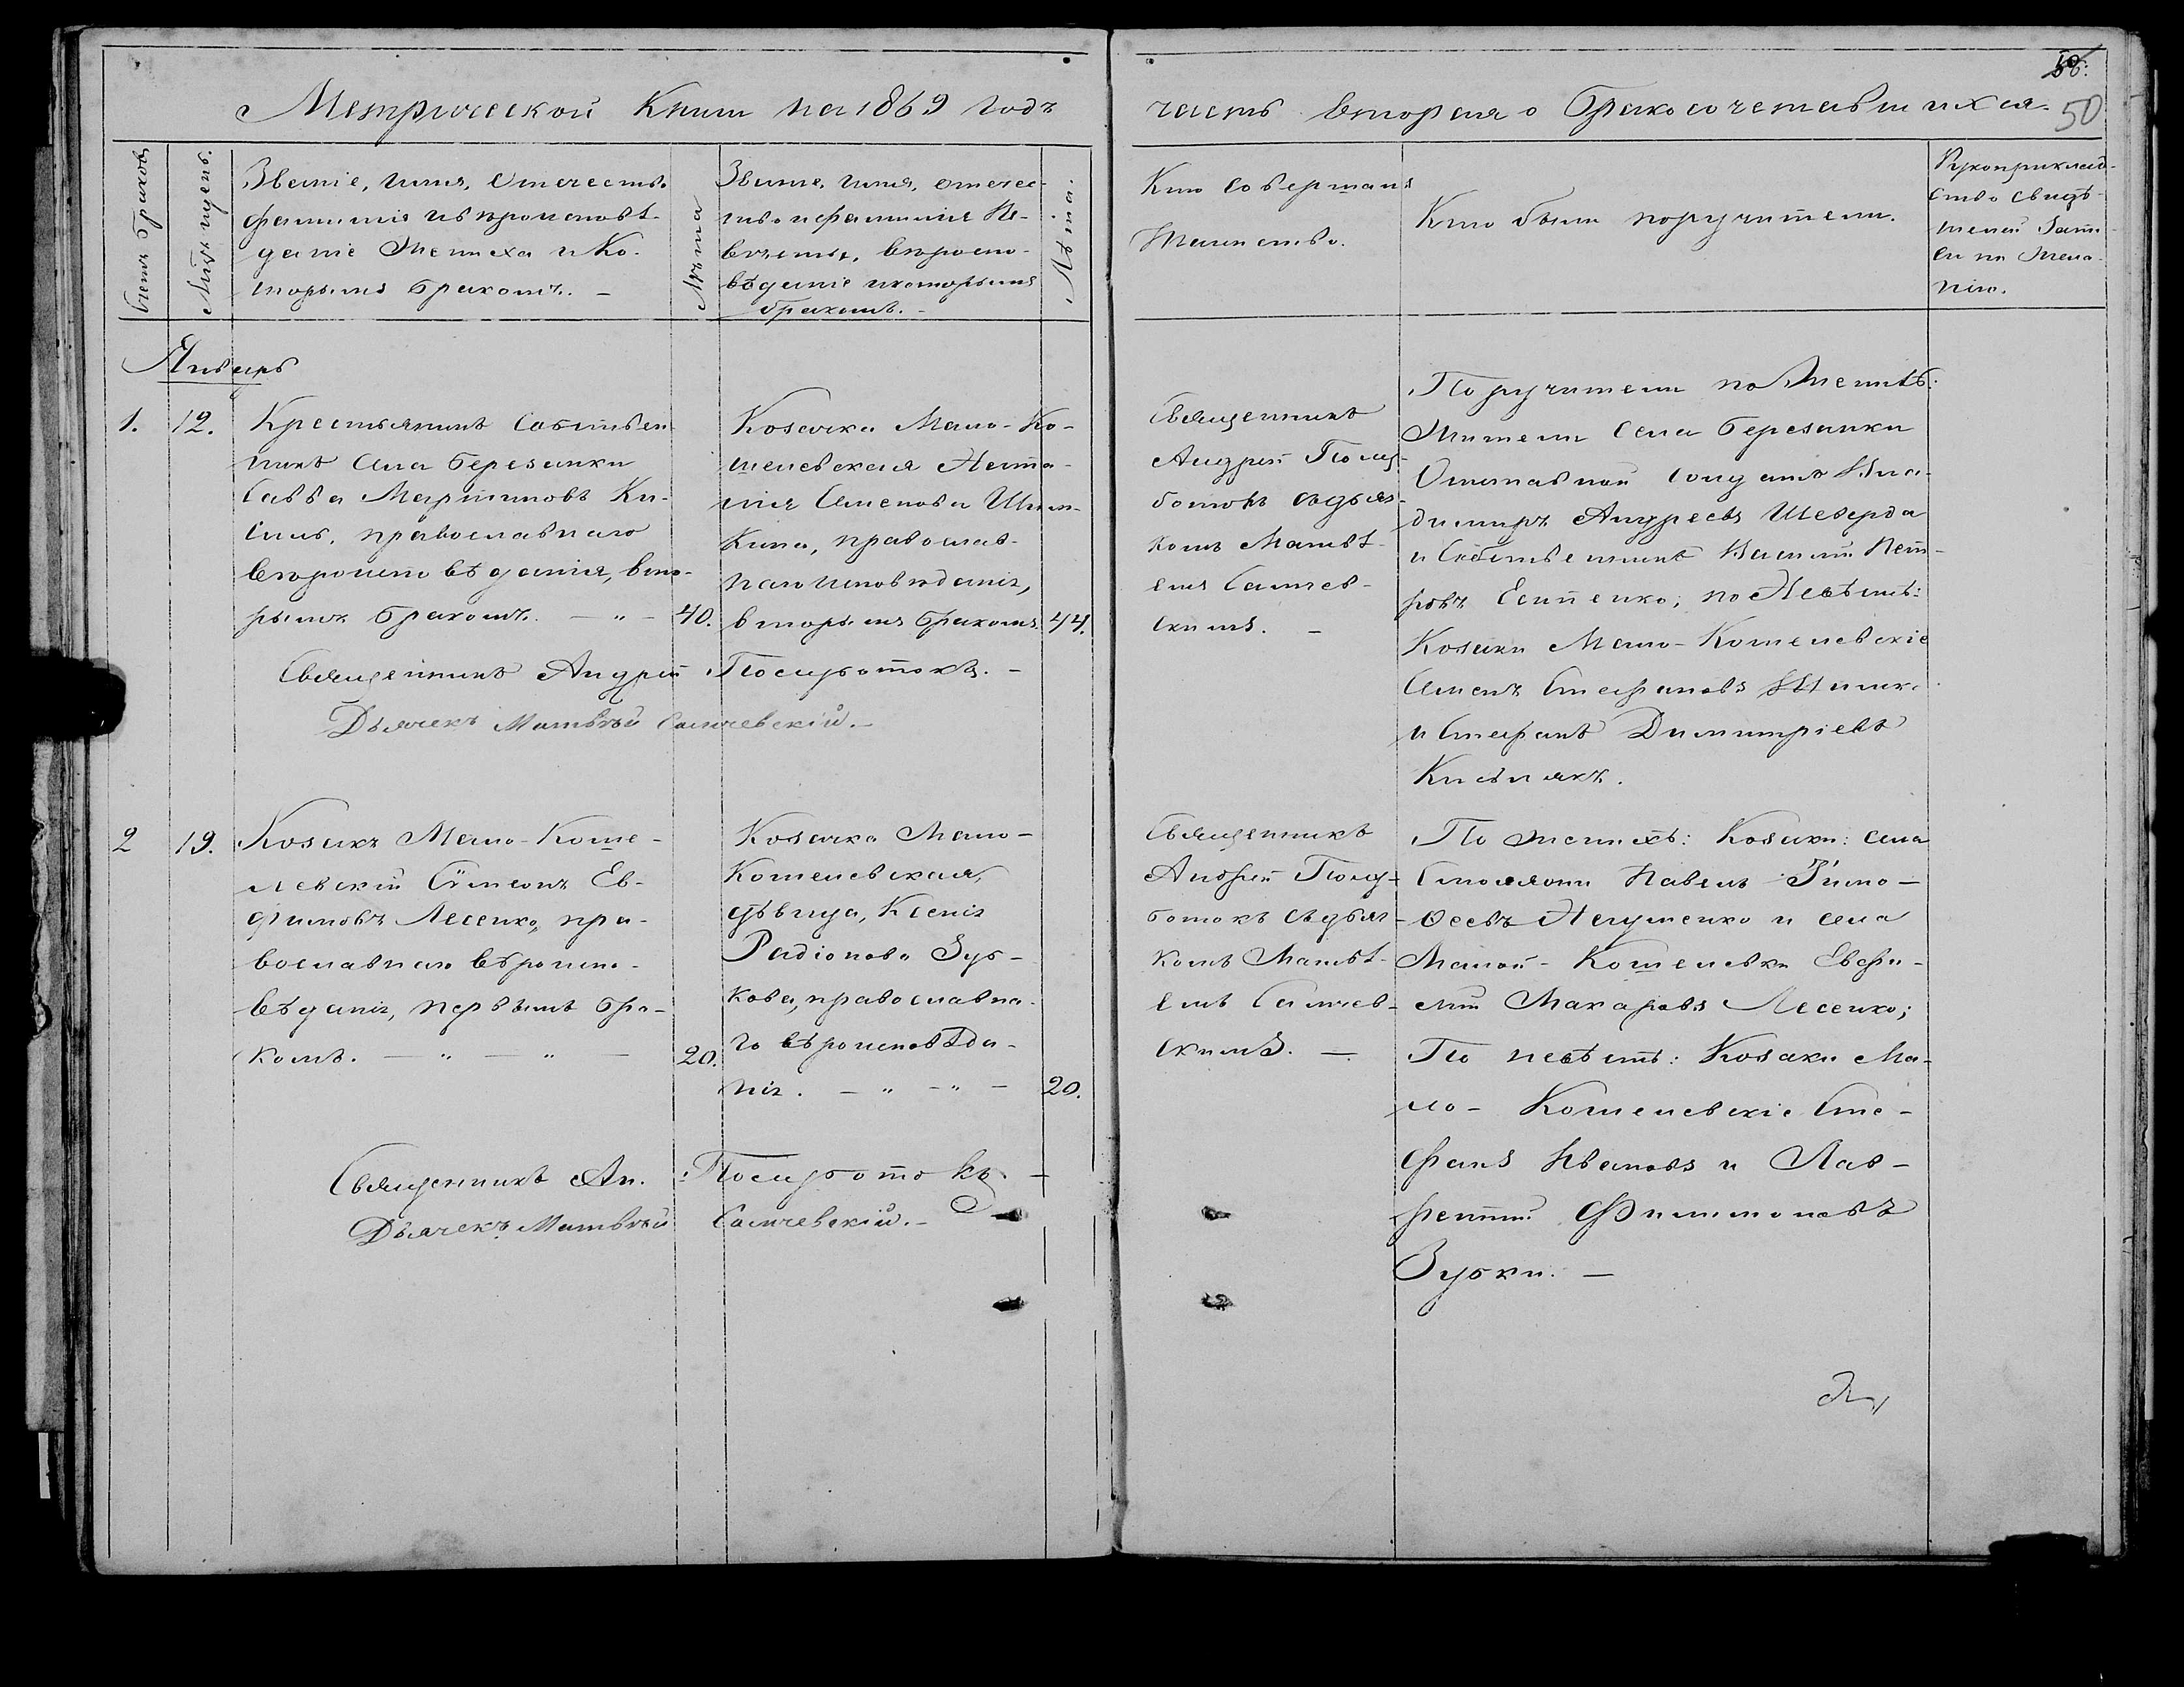 Метрической Книги на 1869 годъ
часть вторая о бракосочетавшихся.
50
Счетъ браковъ
Мѣсяцъ и день.
Званіе, имя, отечество
фамилія и вѣроисповѣ-
даніе Жениха и ко-
торымъ бракомъ. —
Лѣта
Званіе, имя, отечес-
тво и фамилія Не-
вѣсты, вѣроиспо-
вѣданіе и которымъ
бракомъ. -
Лѣта.
Кто совершалъ
Таинство.
Кто были поручители.
Рукоприклад-
ство свидѣ-
телей запи-
си по жела-
нію.
Январь
1. 12.
Крестьянинъ Собствен
никъ села Березанки
Савва Мартиновъ Ки-
силь, православнаго
вѣроисповѣданія, вто-
рымъ бракомъ. — „ — 40.
Козачка Мало-Ко-
шелевская Ната-
лія Семенова Шил-
кина, православ-
наго исповѣданія,
вторымъ бракомъ 44.
Священникъ
Андрей Полу-
ботокъ съ дьяч-
комъ Матвѣ-
емъ Самчев-
скимъ. —
Поручители по Женихѣ:
Жители села Березанки
Отставной солдатъ Вла-
димиръ Андреевъ Шеверда
и Собственникъ Василій Пет-
ровъ Есипенко; по Невѣстѣ:
Козаки Мало-Кошелевскіе
Семенъ Стефановъ Шилк.
и Стефанъ Димитріевъ
Кисьлякъ.
Священникъ Андрей Полуботокъ. —
Дьячекъ Матвѣй Самчевскій. —
2 19.
Козакъ Мало-Коше-
левскій Сѵмеонъ Ев-
фимовъ Лесенко, пра-
вославнаго вѣроиспо-
вѣданія, первымъ бра-
комъ. — „ — „ — 20.
Козачка Мало-
Кошелевская,
дѣвица, Ксенія
Радіонова Зуб-
кова, православна-
го вѣроисповѣда-
нія. — „ — „ — 20.
Священникъ
Андрей Полу-
ботокъ съ дьяч-
комъ Матвѣ-
емъ Самчев-
скимъ. —
По женихѣ: Козаки: села
Смоляжи Павелъ Тимо-
ѳеевъ Ягуменко и села
Малой-Кошелевки Евфи-
мій Макаровъ Лесенко;
По невѣстѣ: Козаки Ма-
ло-Кошелевскіе Сте-
фанъ Ивановъ и Лав-
рентій Филимоновъ
Зубки. —
Священникъ Ан. Полуботокъ. —
Дьячекъ Матвѣй Самчевскій. —